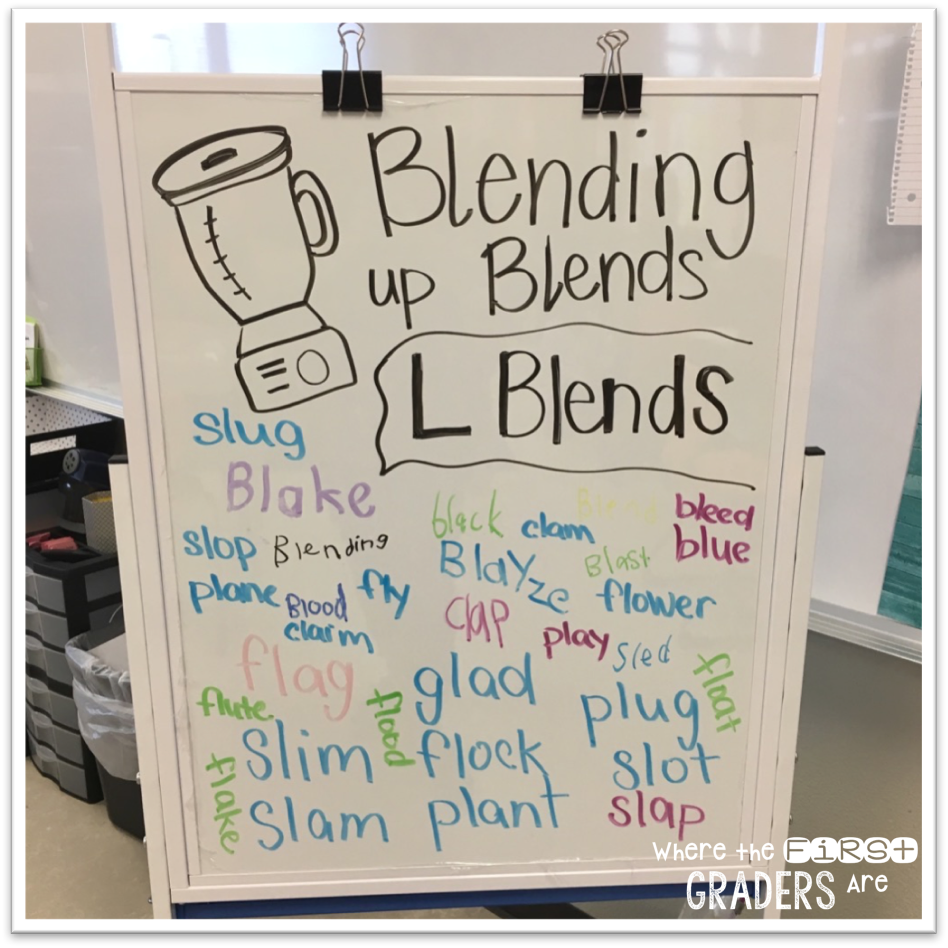 Blending
up Blends
L Blends
slug
Blake
black clam Blend bleed
slop Blending Blayze Blast blue
plane Blood fly clap flower
claim play sled
flag glad float
flute flood plug
slim flock slot
flake slam plant slap
Where the FiRST
GRADERS Are